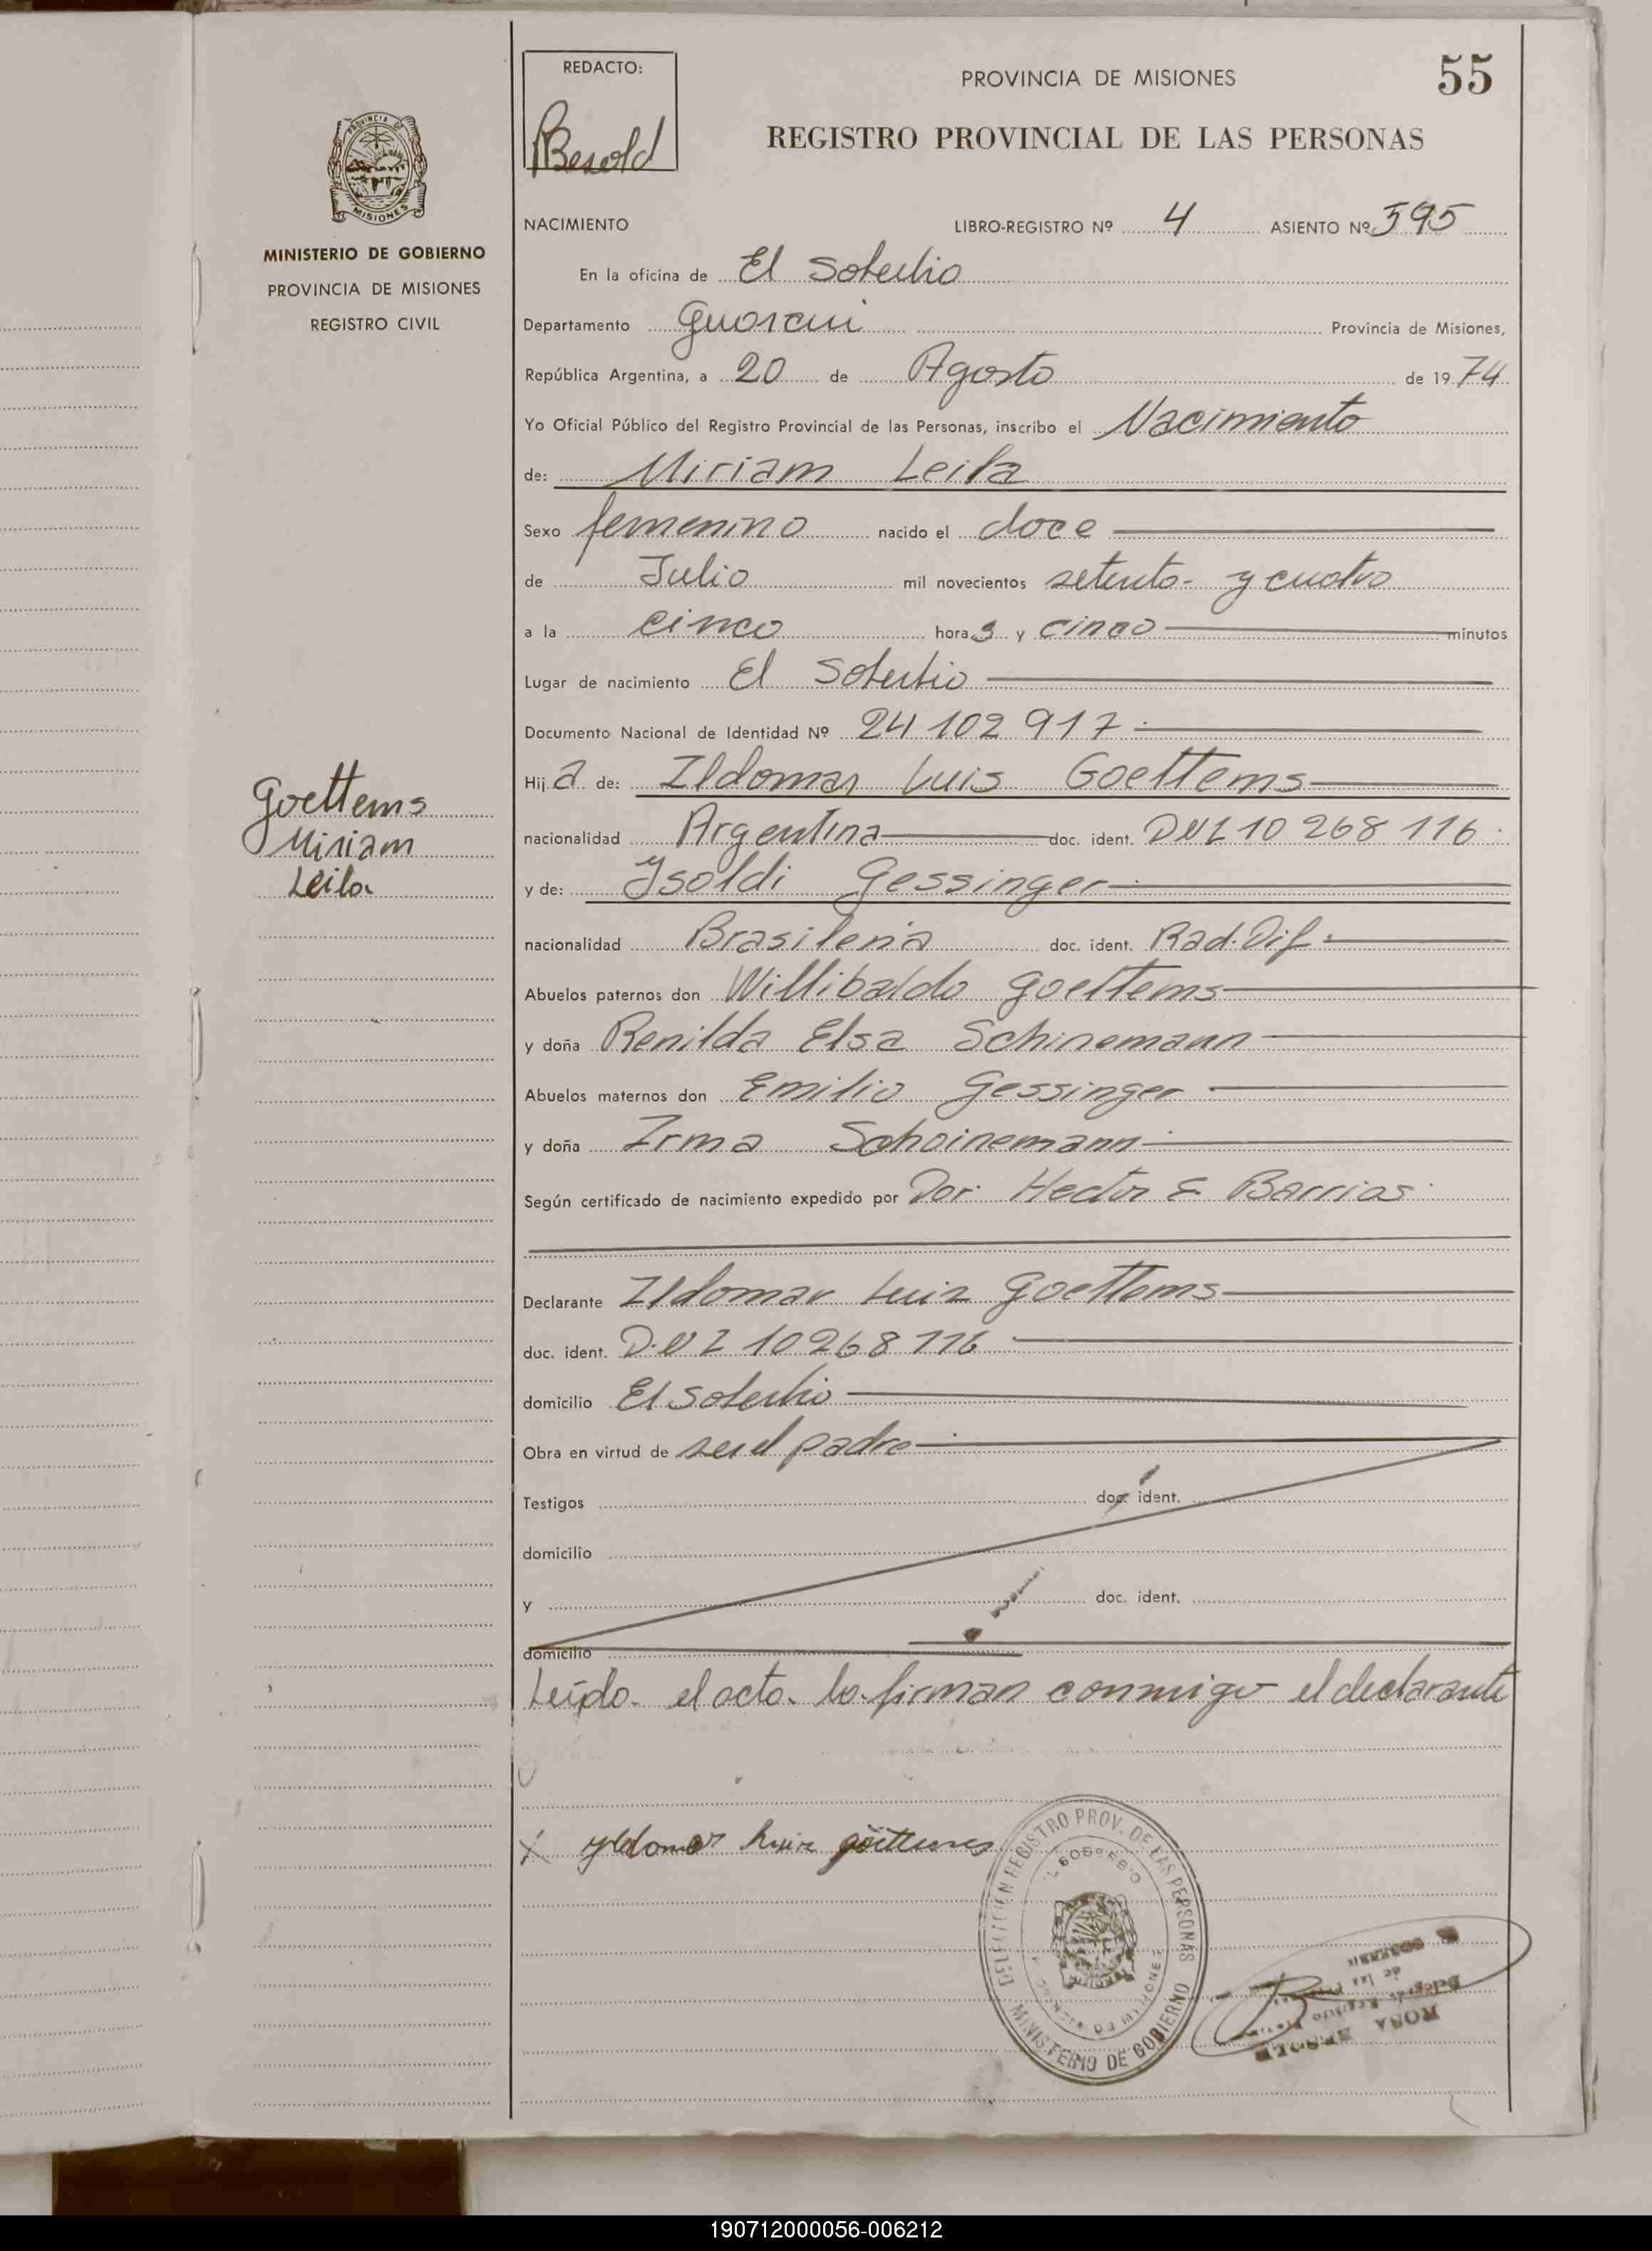 55
REDACTO:
Besold
PROVINCIA DE MISIONES
REGISTRO PROVINCIAL DE LAS PERSONAS
PROVINCIA DE
MISIONES
MINISTERIO DE GOBIERNO
PROVINCIA DE MISIONES
REGISTRO CIVIL
NACIMIENTO LIBRO-REGISTRO Nº 4 ASIENTO Nº 595
En la oficina de El Soberbio
Departamento Guarani Provincia de Misiones,
República Argentina, a 20 de Agosto de 1974
Yo Oficial Público del Registro Provincial de las Personas, inscribo el Nacimiento
de: Miriam Leila
Sexo femenino nacido el doce
de Julio mil novecientos setenta y cuatro
a la cinco horas y cinco minutos
Lugar de nacimiento El Soberbio
Documento Nacional de Identidad Nº 24 102 917
Hija de: Ildomar Luis Goettems
nacionalidad Argentina doc. ident. DNI 10 268 116
y de: Ysoldi Gessinger
nacionalidad Brasileña doc. ident. Rad. Dif.
Abuelos paternos don Willibaldo Goettems
y doña Renilda Elsa Schinemann
Abuelos maternos don Emilio Gessinger
y doña Irma Schoinemann
Según certificado de nacimiento expedido por Dor. Hector E Barrios
Declarante Ildomar Luiz Goettems
doc. ident. D.N I 10 268 116
domicilio El Soberbio
Obra en virtud de ser el padre
Testigos doc. ident.
domicilio
y doc. ident.
domicilio
Leído el acta lo firman conmigo el declarante
Goettems
Miriam
Leila
X Yldomar Luiz göttems
REGISTRO PROV. DE LAS PERSONAS
MINISTERIO DE GOBIERNO
ROSA
190712000056-006212